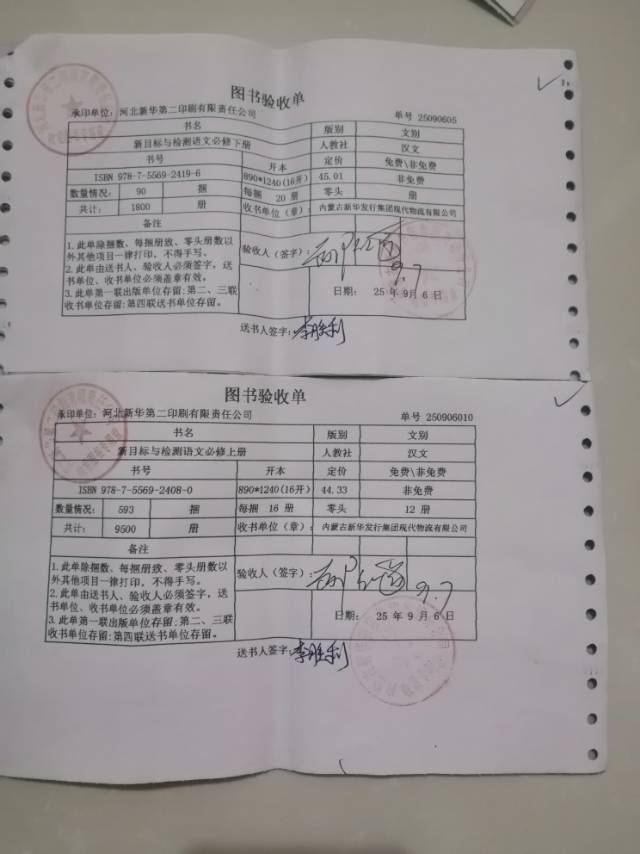 图书验收单
承印单位：河北新华第二印刷有限责任公司 单号 25090605
书名 版别 文别
新目标与检测语文必修下册 人教社 汉文
书号 开本 定价 免费\非免费
ISBN 978-7-5569-2419-6 890*1240(16开) 45.01 非免费
数量情况： 90 捆 每捆 20 册 零头 册
共计： 1800 册 收书单位（章）： 内蒙古新华发行集团现代物流有限公司
备注
1.此单除捆数、每捆册致、零头册数以
外其他项目一律打印，不得手写。
2.此单由送书人、验收人必须签字，送
书单位、收书单位必须盖章有效。
3.此单第一联出版单位存留;第二、三联
收书单位存留:第四联送书单位存留。
验收人（签字）：
9.7
日期： 25 年 9 月 6 日
送书人签字： 李胜利
图书验收单
承印单位：河北新华第二印刷有限责任公司 单号 250906010
书名 版别 文别
新目标与检测语文必修上册 人教社 汉文
书号 开本 定价 免费\非免费
ISBN 978-7-5569-2408-0 890*1240(16开) 44.33 非免费
数量情况： 593 捆 每捆 16 册 零头 12 册
共计： 9500 册 收书单位（章）： 内蒙古新华发行集团现代物流有限公司
备注
1.此单除捆数、每捆册致、零头册数以
外其他项目一律打印，不得手写。
2.此单由送书人、验收人必须签字，送
书单位、收书单位必须盖章有效。
3.此单第一联出版单位存留:第二、三联
收书单位存留:第四联送书单位存留。
验收人（签字）：
9.7
日期： 25 年 9 月 6 日
送书人签字： 李胜利